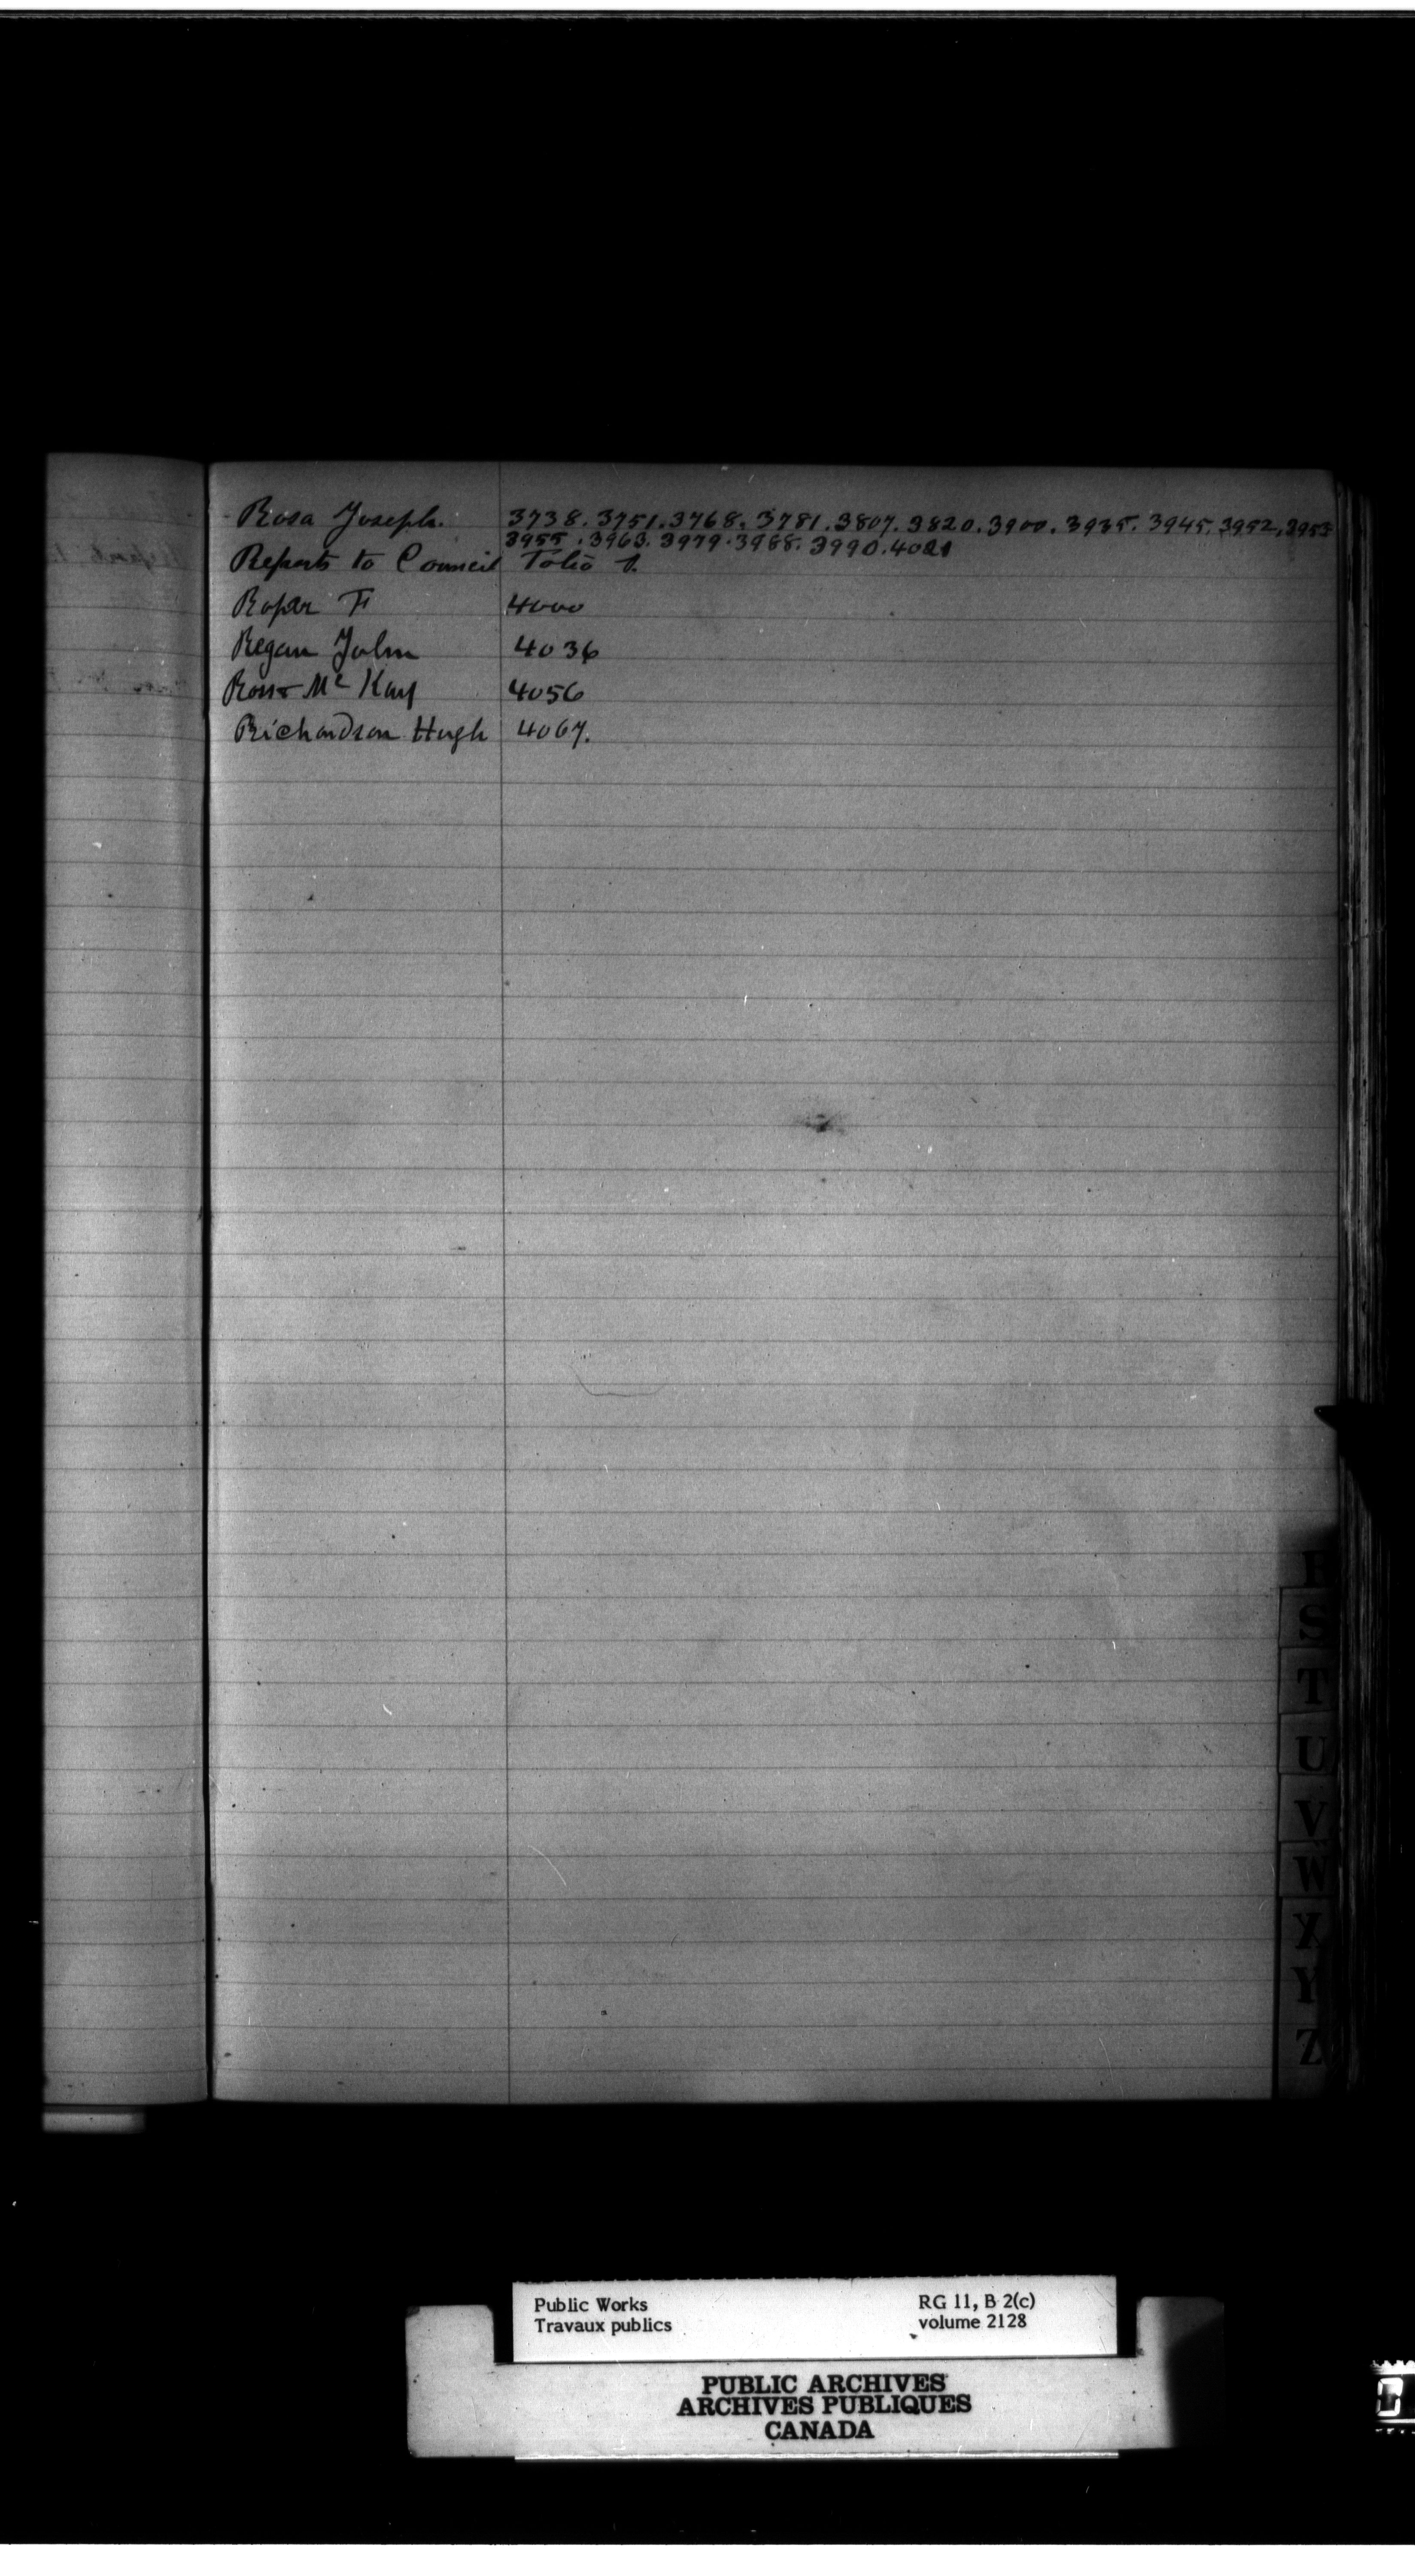 Rosa Joseph. 3738. 3751. 3768. 3781. 3807. 3820. 3900. 3935. 3945. 3952, 3953
3955. 3963. 3979. 3988. 3990. 4021
Reports to Council Folio 1.
Roper F 4000
Regan John 4036
Ross & McKay 4056
Richardson Hugh 4067.
R
S
T
U
V
W
X
Y
Z
Public Works RG 11, B 2(c)
Travaux publics volume 2128
PUBLIC ARCHIVES
ARCHIVES PUBLIQUES
CANADA